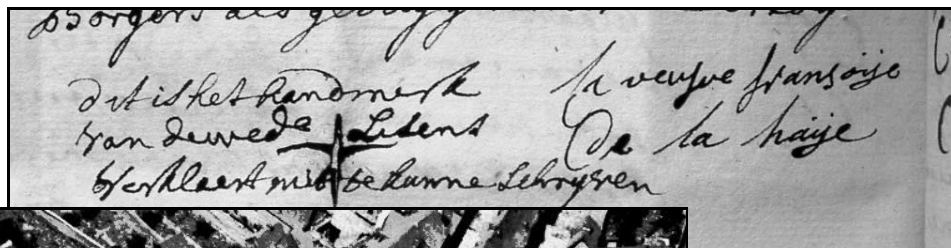 Borgers als getuijg
dit is het handmerk
van de wede Litens
Verklaert niet te kunne Schryven
la veufve fransoije
De la haije